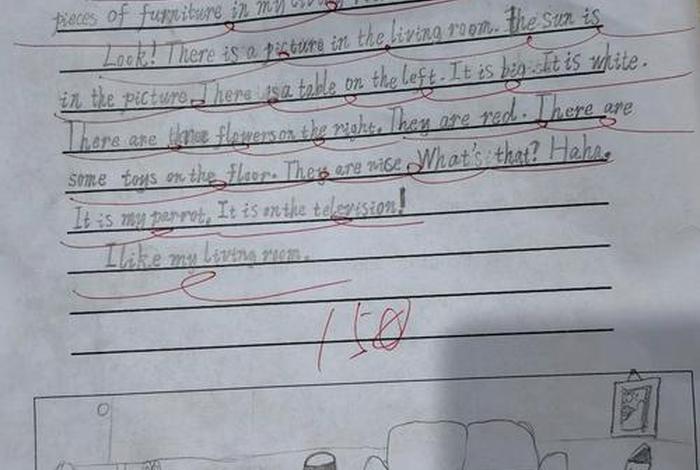 pieces of furniture in my living
Look! There is a picture in the living room. the sun is
in the picture. There is a table on the left. It is big. It is white.
There are three flowers on the right. They are red. There are
some toys on the floor. They are nice. What's that? Haha.
It is my parrot. It is on the television!
I like my living room.
150